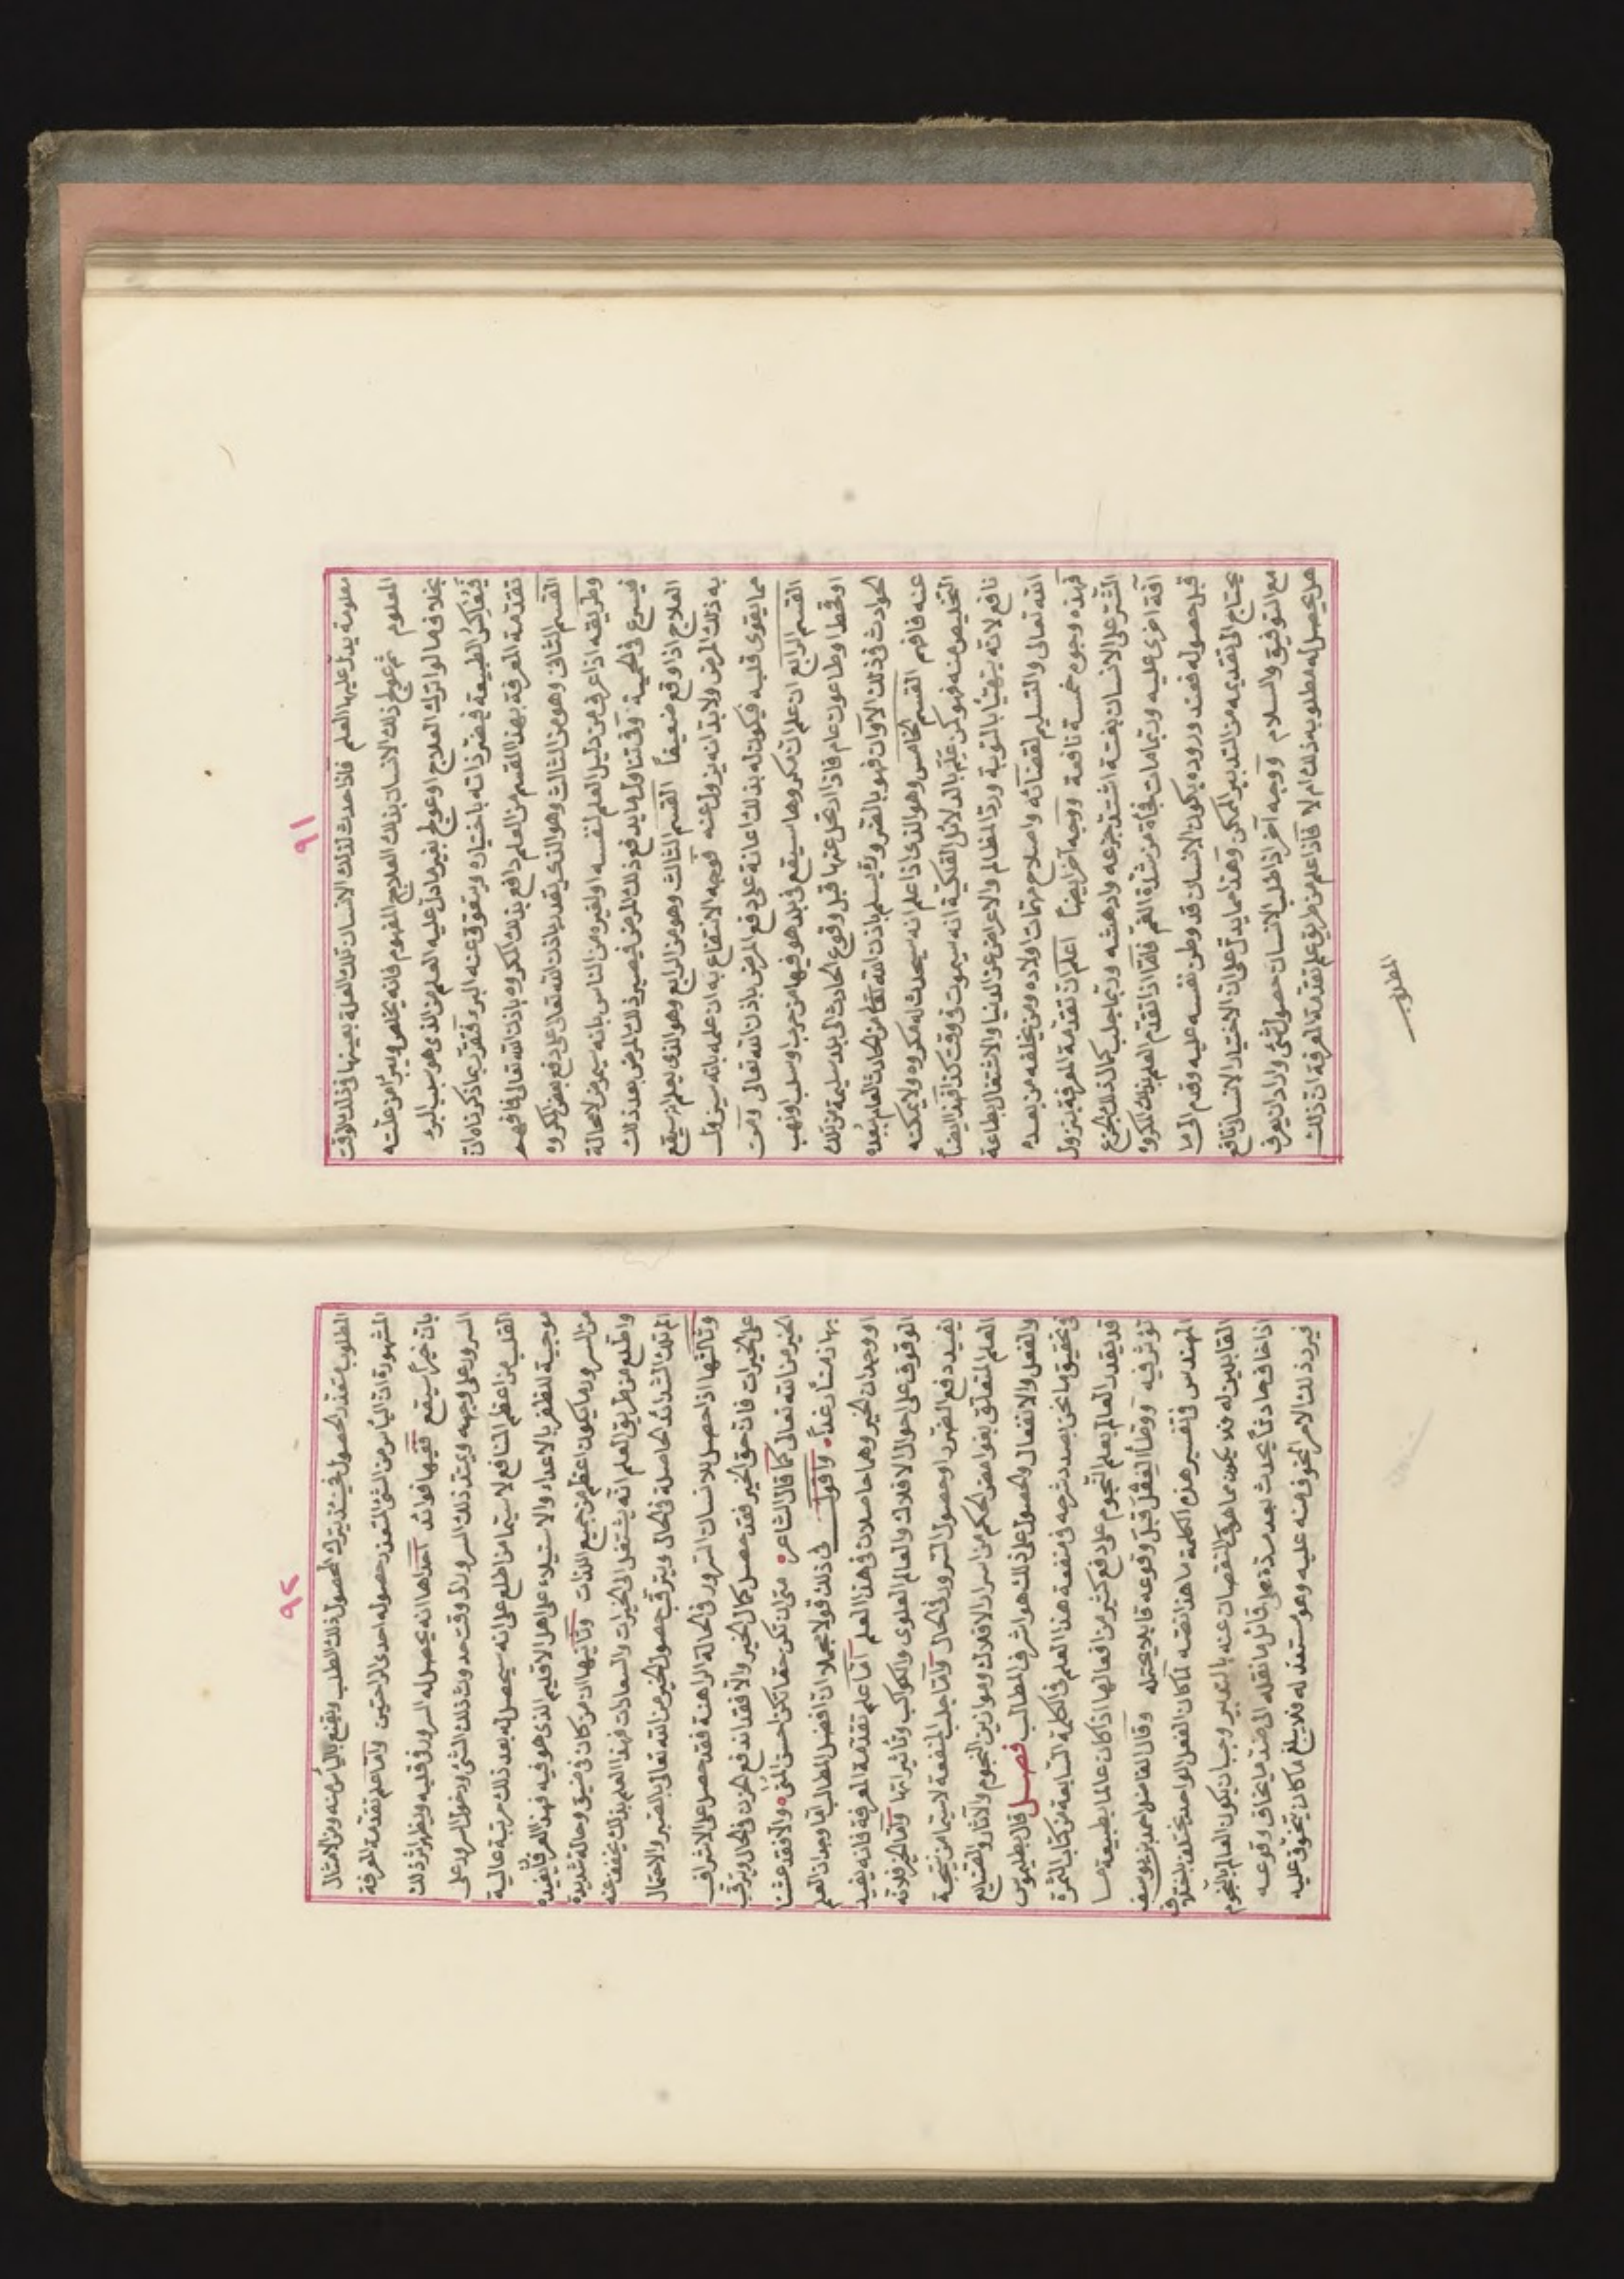 ٩١
معلومة يدل عليها العلم فاذا حدث لذلك الانسان تلك العلة بعينها فى ذلك الوقت
المعلوم ثم عولج ذلك الانسان بذلك العلاج المفهوم فانه يخلص ويبرأ من علته
بخلاف ما لو ترك العلاج او عولج بغير ما دل عليه العلم من الذى هو سبب للبرء
الطبيعة فيضر ذاته باختياره ويتعوق عنه البرء فتقرر بما ذكرناه ان
تقدمة المعرفة بهذا القسم من العلم دافع بذلك المكروه باذن الله تعالى فافهم
القسم الثانى وهو من الثالث وهو الذى يقدر باذن الله تعالى على دفع بعض المكروه
وطريقه اذا عرف من دليل العلم لنفسه او لغيره من الناس بانه سيمرض لا محالة
فيسرع فى الحمية وفى تناول ما يدفع ذلك المرض فيصير ذلك المرض بعد ذلك
العلاج اذا وقع ضعيفاً القسم الثالث وهو من الرابع وهو الذى يعلم ان سيقع
به ذلك المرض ولا بد انه يزول عنه فوجه الانتفاع به ان علمه بانه سيزول
مما يقوى قلبه فيكون له بذلك اعانة على دفع المرض باذن الله تعالى ومن
القسم الرابع ان علم ان مكروها سيقع فى بلد هو فيها من حرب او سلب او نهب
او قحط او طاعون عام فاذا ارتحل عنها قبل وقوع الحادث الى بلد سليمة من تلك
الحوادث فى ذلك الآوان فهو بالضرورة يسلم باذن الله تعالى من الحادث العام ببعده
عنه فافهم القسم الخامس وهو الذى اذا علم انه سيحدث له مكروه ولا يمكنه
التخليص منه فهو كمن علم بالدلائل الفلكية انه سيموت فى وقت كذا فهذا ايضاً
نافع لانه يتهيأ بالتوبة ورد المظالم والاعراض عن الدنيا والاشتغال بطاعة
الله تعالى والتسليم لقضائه واصلاح مهمات اولاده ومن يخلفه من بعده
فهذه وجوه خمسة نافعة ووجه آخر ايضاً اعلم ان تقدمة المعرفة بنزول
الشر على الانسان بغتة اشتد جزعه وادهشه وربما جلب كمال ذلك الجزع
آفة اخرى عليه وربما مات فجأة من شدة الغم فاما اذا تقدم العلم بذلك المكروه
قبل حصوله فعند وروده يكون الانسان قد وطن نفسه عليه وقدم الى ما
يحتاج الى تقديمه من التدبير الممكن وهذا مما يدل على ان الاختيار الانسانى نافع
مع التوفيق والسلام ووجه آخر اذا طلب الانسان حصول شئ واراد ان يعرف
هل يحصل له مطلوبه ذلك ام لا فاذا علم من طريق علم تقدمة المعرفة ان ذلك
المطلوب
٩٢
المطلوب متعذر الحصول فحينئذ يترك الحصول ذلك الطلب ويقنع باليأس منه ومن الامثال
المشهورة ان اليأس من الشئ المتعذر حصوله احدى الراحتين واما علم تقدمة المعرفة
بان خيراً سيقع ففيها فوائد احداها انه يحصل له السرور فى قلبه ويظهر اثر ذلك
السرور على وجهه ويمتد ذلك السرور الى وقت حدوث ذلك الشئ ودخول السرور على
القلب من اعظم المنافع لا سيما من اطلع على انه سيحصل له بعد ذلك مرتبة عالية
موجبة للظفر بالاعداء والاستيلاء على اهل الاقليم الذى هو فيه فهذا العرفان يفيده
من السرور ما يكون اعظم من جميع اللذات وثانيها ان من كان فى ضيق وحالة شديدة
واطلع من طريق العلم انه ينتقل الى الخيرات والسعادات فهذا العلم بذلك يخفف عنه
الم تلك الشدائد الحاصلة فى الحال ويترقب حصول الخير من الله تعالى بالصبر والاحتمال
وثالثها اذا حصل للانسان السرور فى الحالة الراهنة فقد حصل على الاشراف
على الخيرات فان حق الخير فقد حصل كمال الخير والا فقد اندفع الحزن فى الحال ويترقب
الخير من الله تعالى كما قال الشاعر متى ان تكن حقا تكن احسن المنى والا فقد عشنا
بها زمناً رغداً واقول فى ذلك قولا مجملا ان افضل المطالب اما وجدان العلم
او وجدان الخير وهما حاصلان فى هذا العلم اما علم تقدمة المعرفة فانه يفيد
الوقوف على احوال الافلاك والعالم العلوى والكواكب وتأثيراتها واما الخير فلانه
يفيد دفع الضرر او حصول السرور فى الحال واما جلب المنفعة لا سيما من نتيجة
العلم المتعلق بغوامض الحكم من اسرار الافلاك وموازين النجوم والآثار والصنايع
والفعل والانفعال والحصول على ذلك هو اشرف المطالب فصل قال بطليموس
فى تحقيق ما نحن بصدد شرحه فى منفعة هذا العلم فى الكلمة السابعة من كتاب الثمرة
قد يقدر العالم بعلم النجوم على دفع كثير من افعالها اذا كان عالما بطبيعة ما
تؤثر فيه ووطأ للفعل قبل وقوعه قابلا يحتمله وقال الفاضل احمد بن يوسف
المهندس فى تفسير هذه الكلمة ما هذا نصه لما كان الفعل الواحد يختلف باختلاف
القابلين له فقد يكون مما هو النقصان عنه بالتدبير وجب ان يكون العالم بالنجوم
اذا خاف حادثاً يحدث بعد مدة على قابل ما نقله الى ضد ما يخاف وقوعه
فيرد ذلك الامر المخوف منه عليه وهو مستعد له فلا يبلغ ما كان يتخوف عليه